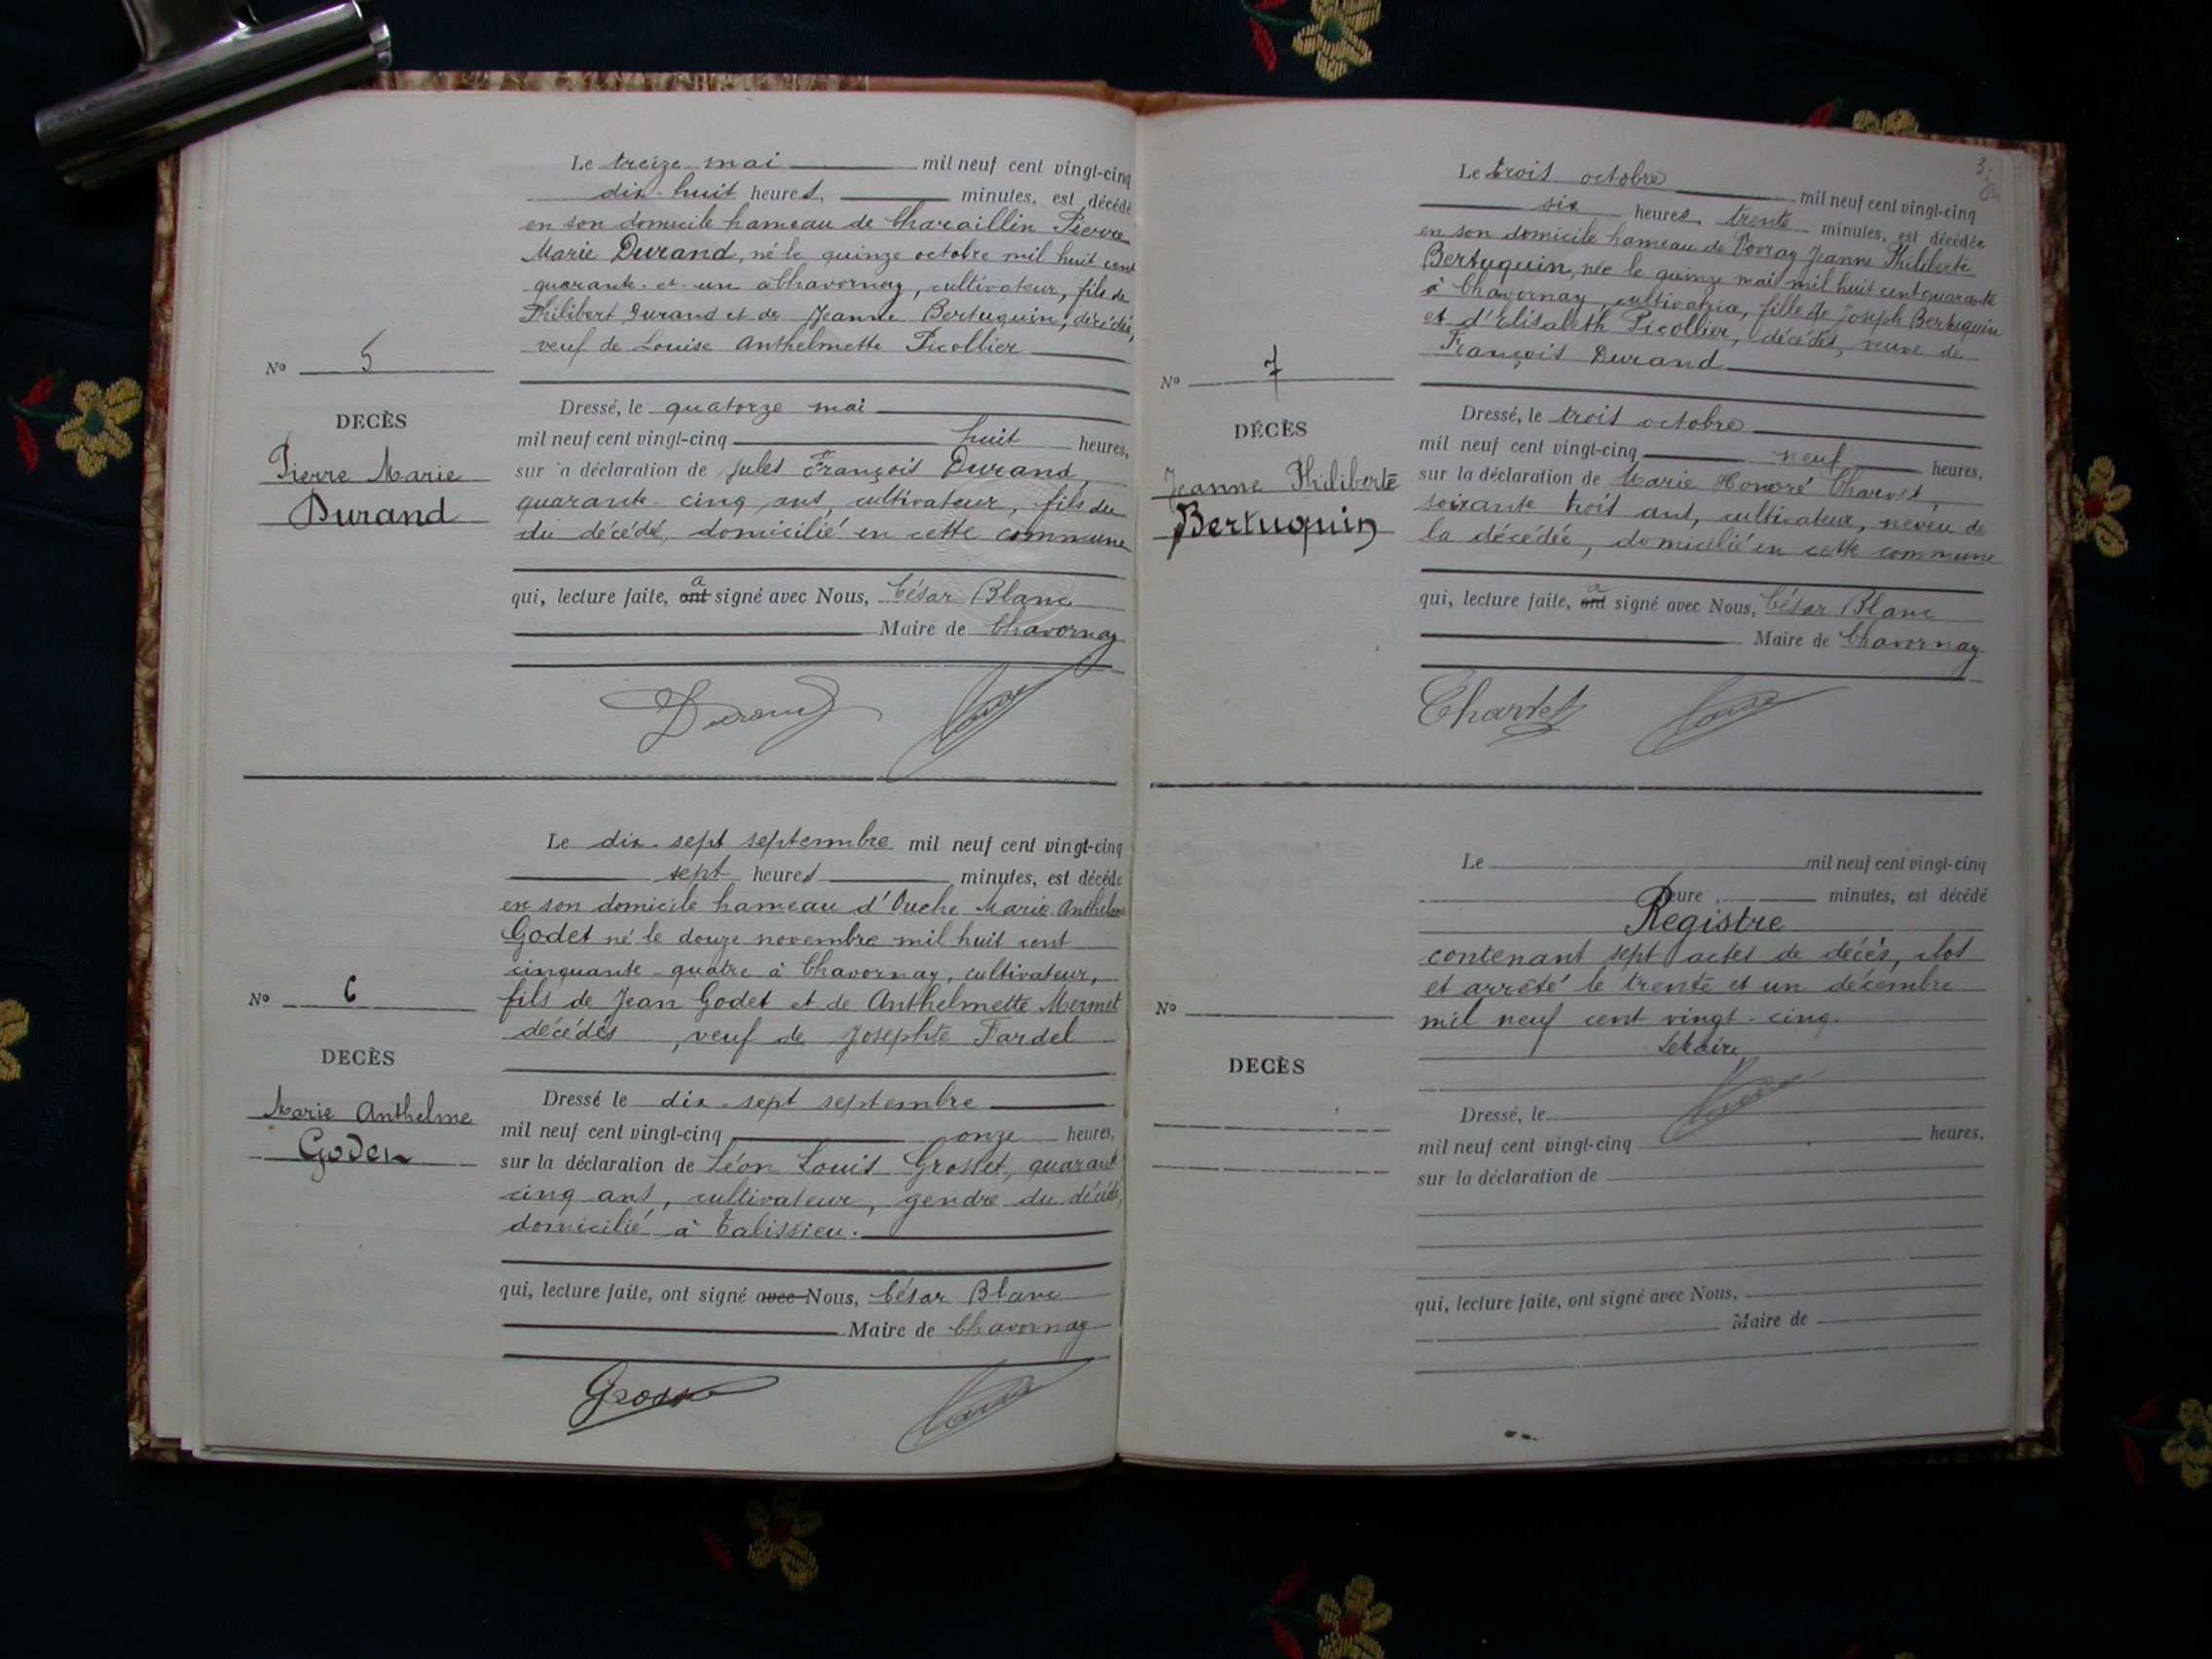 Le treize mai mil neuf cent vingt-cinq
dix-huit heures, minutes, est décédé
en son domicile hameau de Charaillin Pierre
Marie Durand, né le quinze octobre mil huit cent
quarante-et-un à Chavornay, cultivateur, fils de
Philibert Durand et de Jeanne Bertuquin, décédés,
veuf de Louise Anthelmette Picollier
No 5
DECÈS
Pierre Marie
Durand
Dressé, le quatorze mai
mil neuf cent vingt-cinq huit heures,
sur la déclaration de Jules François Durand,
quarante-cinq ans, cultivateur, fils du
du décédé, domicilié en cette commune
qui, lecture faite, ont a signé avec Nous, César Blanc
Maire de Chavornay
Durand
Le dix-sept septembre mil neuf cent vingt-cinq
sept heures minutes, est décédé
en son domicile hameau d'Ouche Marie Anthelme
Godet né le douze novembre mil huit cent
cinquante-quatre à Chavornay, cultivateur,
fils de Jean Godet et de Anthelmette Mermet
décédés, veuf de Josephte Fardel
No 6
DECÈS
Marie Anthelme
Godet
Dressé le dix-sept septembre
mil neuf cent vingt-cinq onze heures,
sur la déclaration de Léon Louis Grosset, quarante
cinq ans, cultivateur, gendre du décédé,
domicilié à Talissieu.
qui, lecture faite, ont signé avec Nous, César Blanc
Maire de Chavornay
Le trois octobre mil neuf cent vingt-cinq
six heures trente minutes, est décédée
en son domicile hameau de Vovray Jeanne Philiberte
Bertuquin, née le quinze mai mil huit cent quarante
à Chavornay, cultivatrice, fille de Joseph Bertuquin
et d'Elisabeth Picollier, décédés, veuve de
François Durand
No 7
DÉCÈS
Jeanne Philiberte
Bertuquin
Dressé, le trois octobre
mil neuf cent vingt-cinq neuf heures,
sur la déclaration de Marie Honoré Charvet
soixante trois ans, cultivateur, neveu de
la décédée, domicilié en cette commune
qui, lecture faite, ont a signé avec Nous, César Blanc
Maire de Chavornay
Charvet
Le mil neuf cent vingt-cinq
heure, minutes, est décédé
Registre
contenant sept actes de décès, clos
et arrêté le trente et un décembre
mil neuf cent vingt-cinq.
Le Maire
No
DECÈS
Dressé, le
mil neuf cent vingt-cinq heures,
sur la déclaration de
qui, lecture faite, ont signé avec Nous,
Maire de